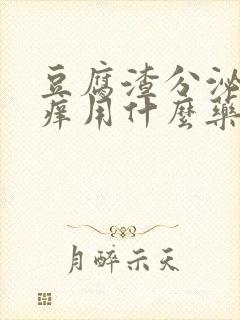 豆腐渣分泌
痒用什麼藥
月醉示天